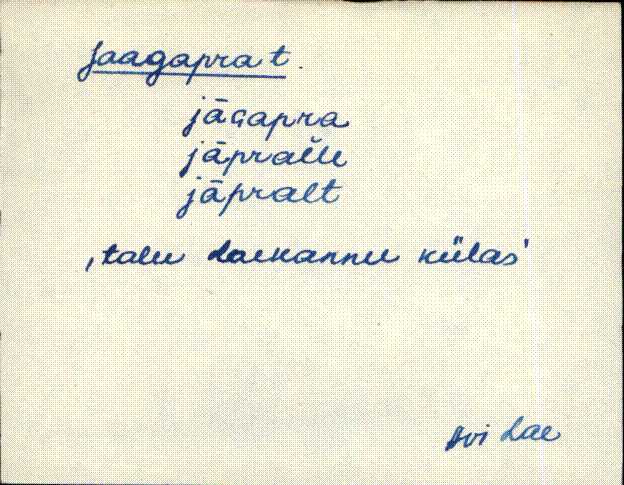 Jaagaprat.
jāɢapra
jāpralle
jāpralt
‚talu Laekannu külas’
Avi Lae